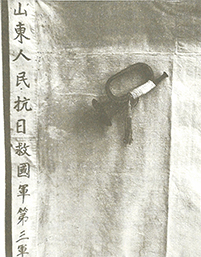 山東人民抗日救國軍第三軍